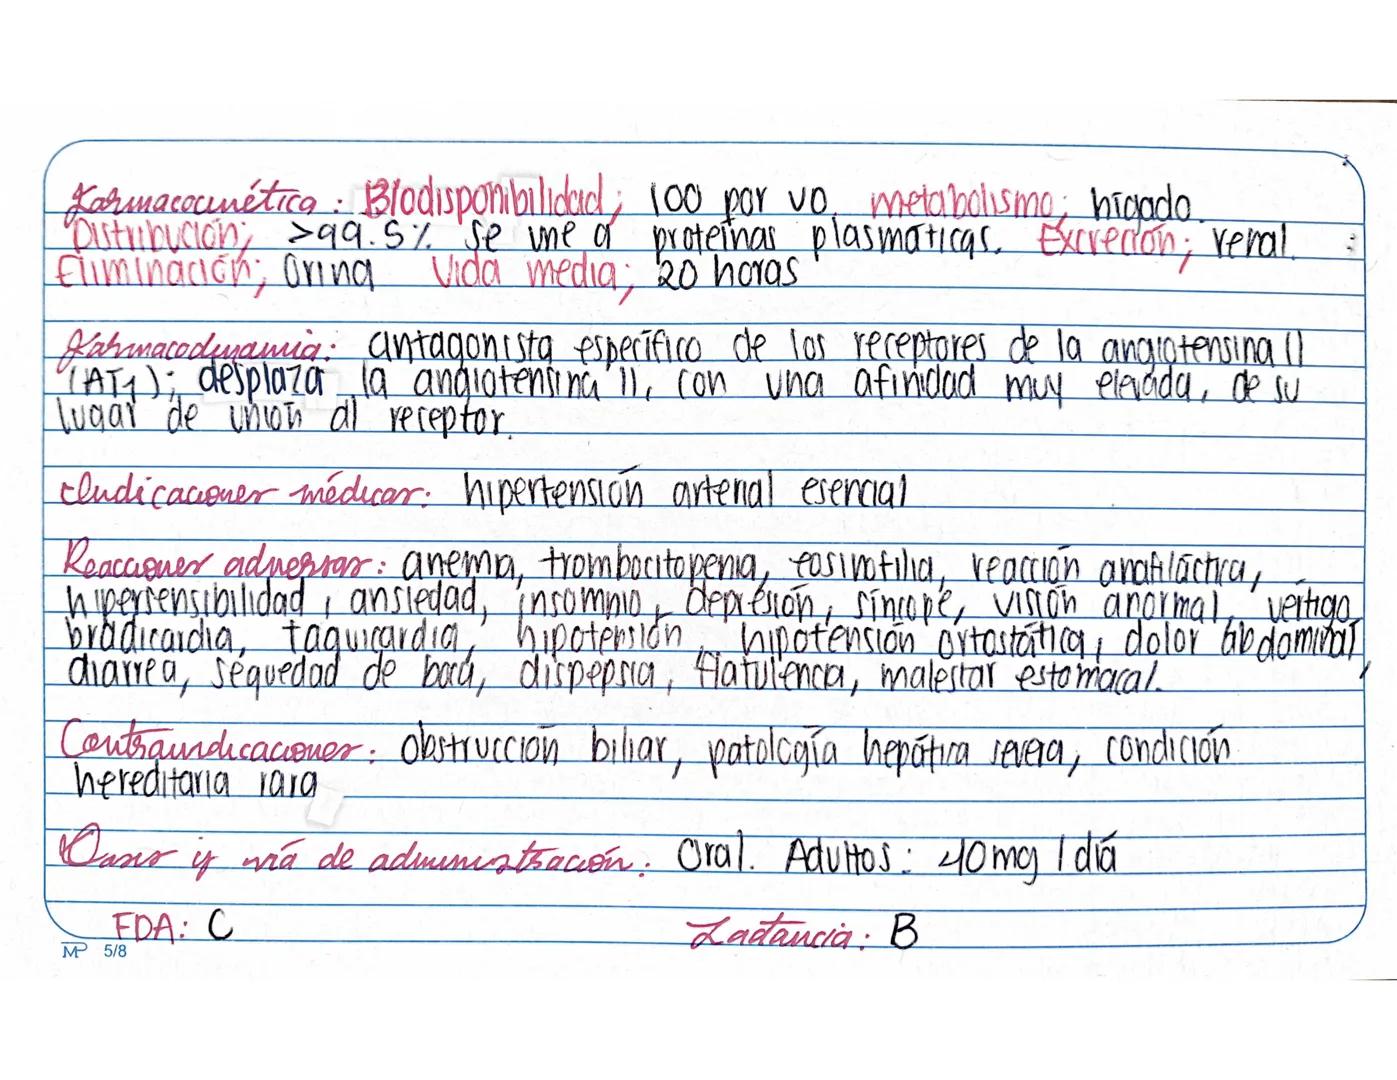 Farmacocinética: Biodisponibilidad; 100 por vo. metabolismo; hígado.
Distribución; >99.5% se une a proteínas plasmáticas. Excreción; renal.
Eliminación; Orina Vida media; 20 horas
Farmacodinamia: antagonista específico de los receptores de la angiotensina II
(AT1); desplaza la angiotensina II, con una afinidad muy elevada, de su
lugar de unión al receptor.
Indicaciones médicas: hipertensión arterial esencial
Reacciones adversas: anemia, trombocitopenia, eosinofilia, reacción anafiláctica,
hipersensibilidad, ansiedad, insomnio, depresión, síncope, visión anormal, vértigo,
bradicardia, taquicardia, hipotensión, hipotensión ortostática, dolor abdominal,
diarrea, sequedad de boca, dispepsia, flatulencia, malestar estomacal.
Contraindicaciones: obstrucción biliar, patología hepática severa, condición
hereditaria rara
Dosis y vía de administración: Oral. Adultos: 40mg/día
FDA: C Lactancia: B
MP 5/8